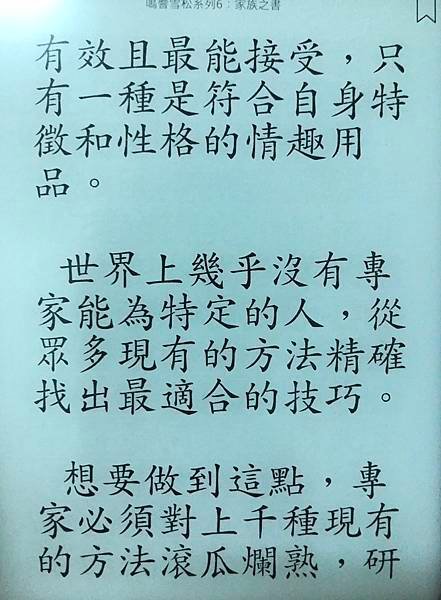 鳴響雪松系列6：家族之書
有效且最能接受，只
有一種是符合自身特
徵和性格的情趣用
品。
世界上幾乎沒有專
家能為特定的人，從
眾多現有的方法精確
找出最適合的技巧。
想要做到這點，專
家必須對上千種現有
的方法滾瓜爛熟，研